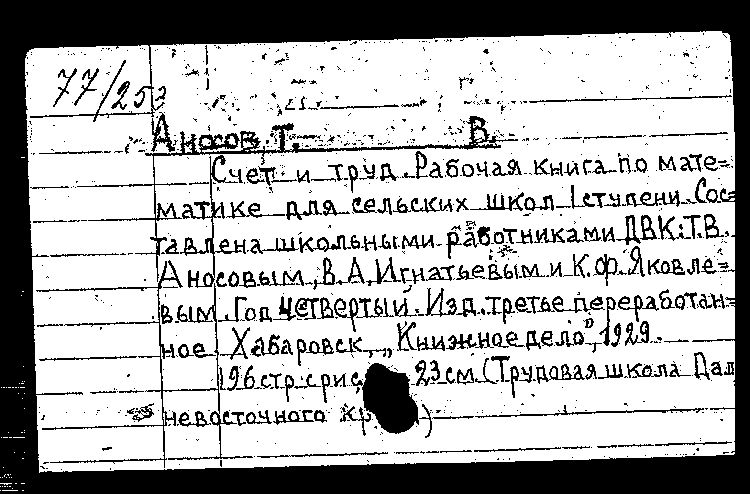 77/253
Аносов, Т. В.
Счет и труд. Рабочая книга по мате=
матике для сельских школ I ступени. Сос=
тавлена школьными работниками ДВК: Т.В.
Аносовым, В.А. Игнатьевым и К.Ф. Яковле=
вым. Год четвертый. Изд. третье переработан=
ное. Хабаровск, „Книжное дело", 1929.
196 стр. с рис. 23 см. (Трудовая школа Дал
невосточного кр )